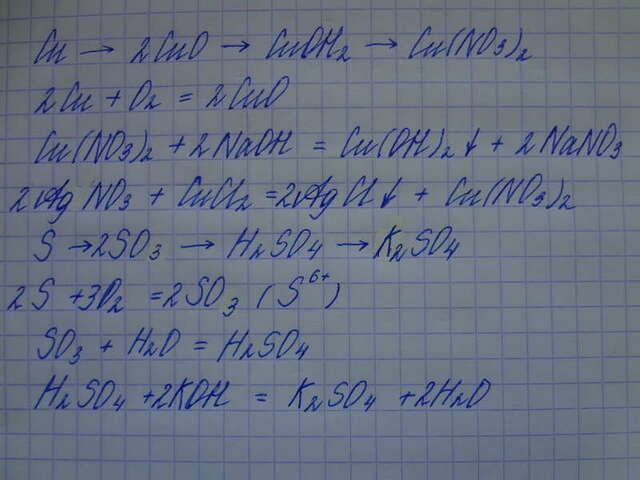 Cu → 2CuO → CuOH₂ → Cu(NO₃)₂
2Cu + O₂ = 2CuO
Cu(NO₃)₂ + 2NaOH = Cu(OH)₂↓ + 2NaNO₃
2AgNO₃ + CuCl₂ = 2AgCl↓ + Cu(NO₃)₂
S → 2SO₃ → H₂SO₄ → K₂SO₄
2S + 3O₂ = 2SO₃ (S⁶⁺)
SO₃ + H₂O = H₂SO₄
H₂SO₄ + 2KOH = K₂SO₄ + 2H₂O